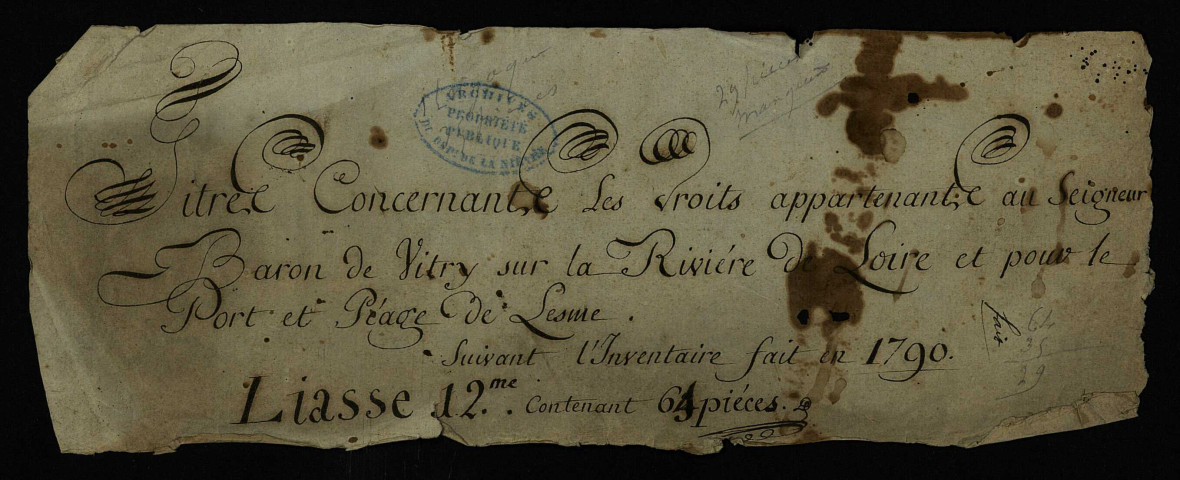 29 piéces
manquent
ARCHIVES
PROPRIÉTÉ
PUBLIQUE
DU DÉPT DE LA NIÈVRE
Titres Concernants Les droits appartenants au Seigneur
Baron de Vitry sur la Riviére de Loire et pour le
Port et Péage de Lesme.
Suivant l'Inventaire fait en 1790.
Liasse 12.me. Contenant 64 piéces.
64
35
29